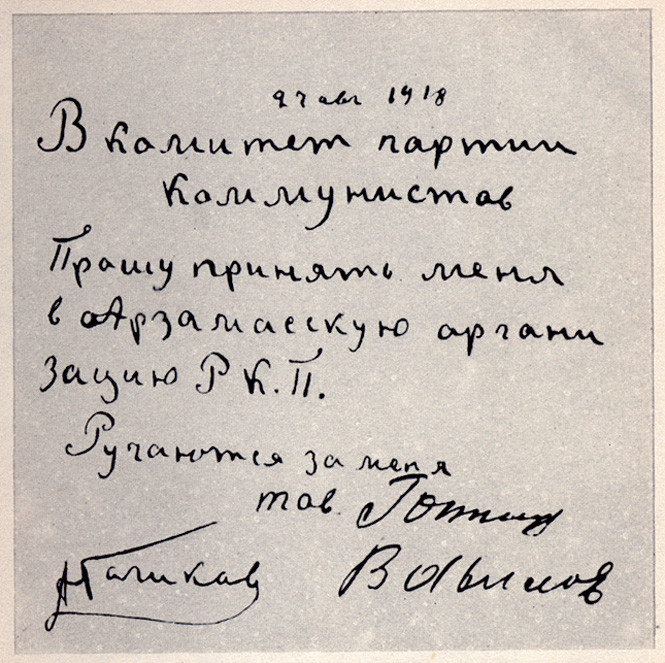 27 авг 1918
В комитет партии
коммунистов
Прошу принять меня
в Арзамасскую органи
зацию Р.К.П.
Ручаются за меня
тов.
Голиков Вавилов